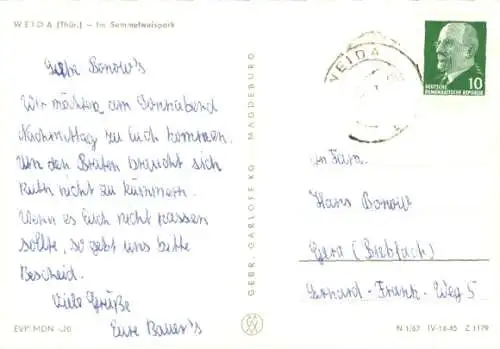 WEIDA (Thür.) — Im Semmelweispark
Liebe Bonow's
Wir möchten am Sonnabend
Nachmittag zu Euch kommen.
Um den Braten braucht sich
Ruth nicht zu kümmern.
Wenn es Euch nicht passen
sollte, so gebt uns bitte
Bescheid.
Viele Grüße
Eure Bauer's
EVP MDN -,20
GEBR. GARLOFF KG MAGDEBURG
WEIDA
10
DEUTSCHE
DEMOKRATISCHE REPUBLIK
An Fam.
Hans Bonow
Gera (Bieblach)
Gerhard-Frank-Weg 5
N 1/67 IV-14-45 Z 1179